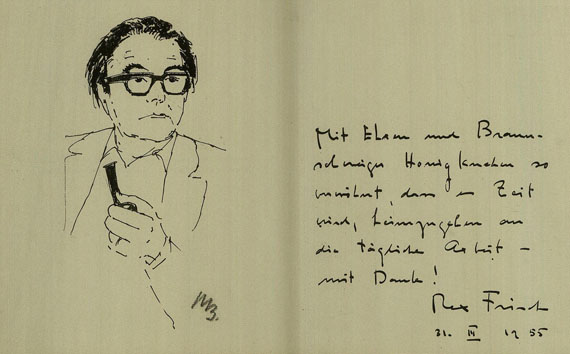 Mit Ehren und Braun-
schweiger Honigkuchen so
verwöhnt, dass es Zeit
wird, heimzugehen an
die tägliche Arbeit –
mit Dank!
Max Frisch
31. III 1955